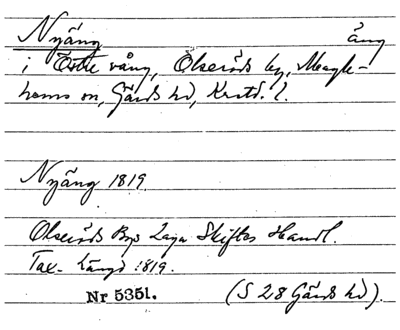 Nyäng äng
i Östre vång, Olseröds by, Magle-
hems sn, Gärds hd, Krstd. l.
Nyäng 1819
Olseröds Bys Laga Skiftes Handl.
Tax. Längd 1819.
Nr 5351. (S 28 Gärds hd).